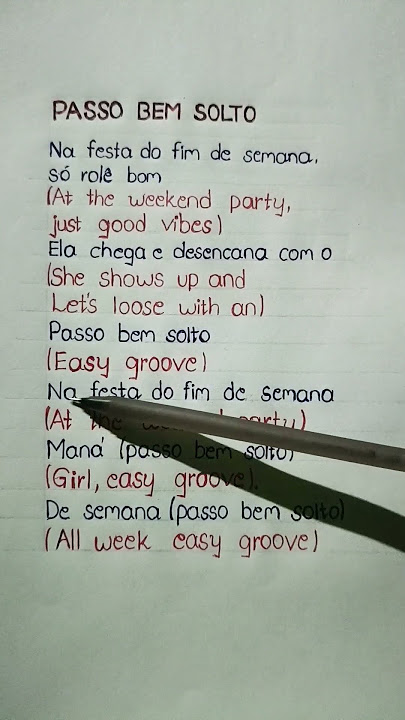 PASSO BEM SOLTO
Na festa do fim de semana,
só rolê bom
(At the weekend party,
just good vibes)
Ela chega e desencana com o
(She shows up and
Let's loose with an)
Passo bem solto
(Easy groove)
Na festa do fim de semana
(At the party)
Maná (passo bem solto)
(Girl, easy groove).
De semana (passo bem solto)
(All week easy groove)